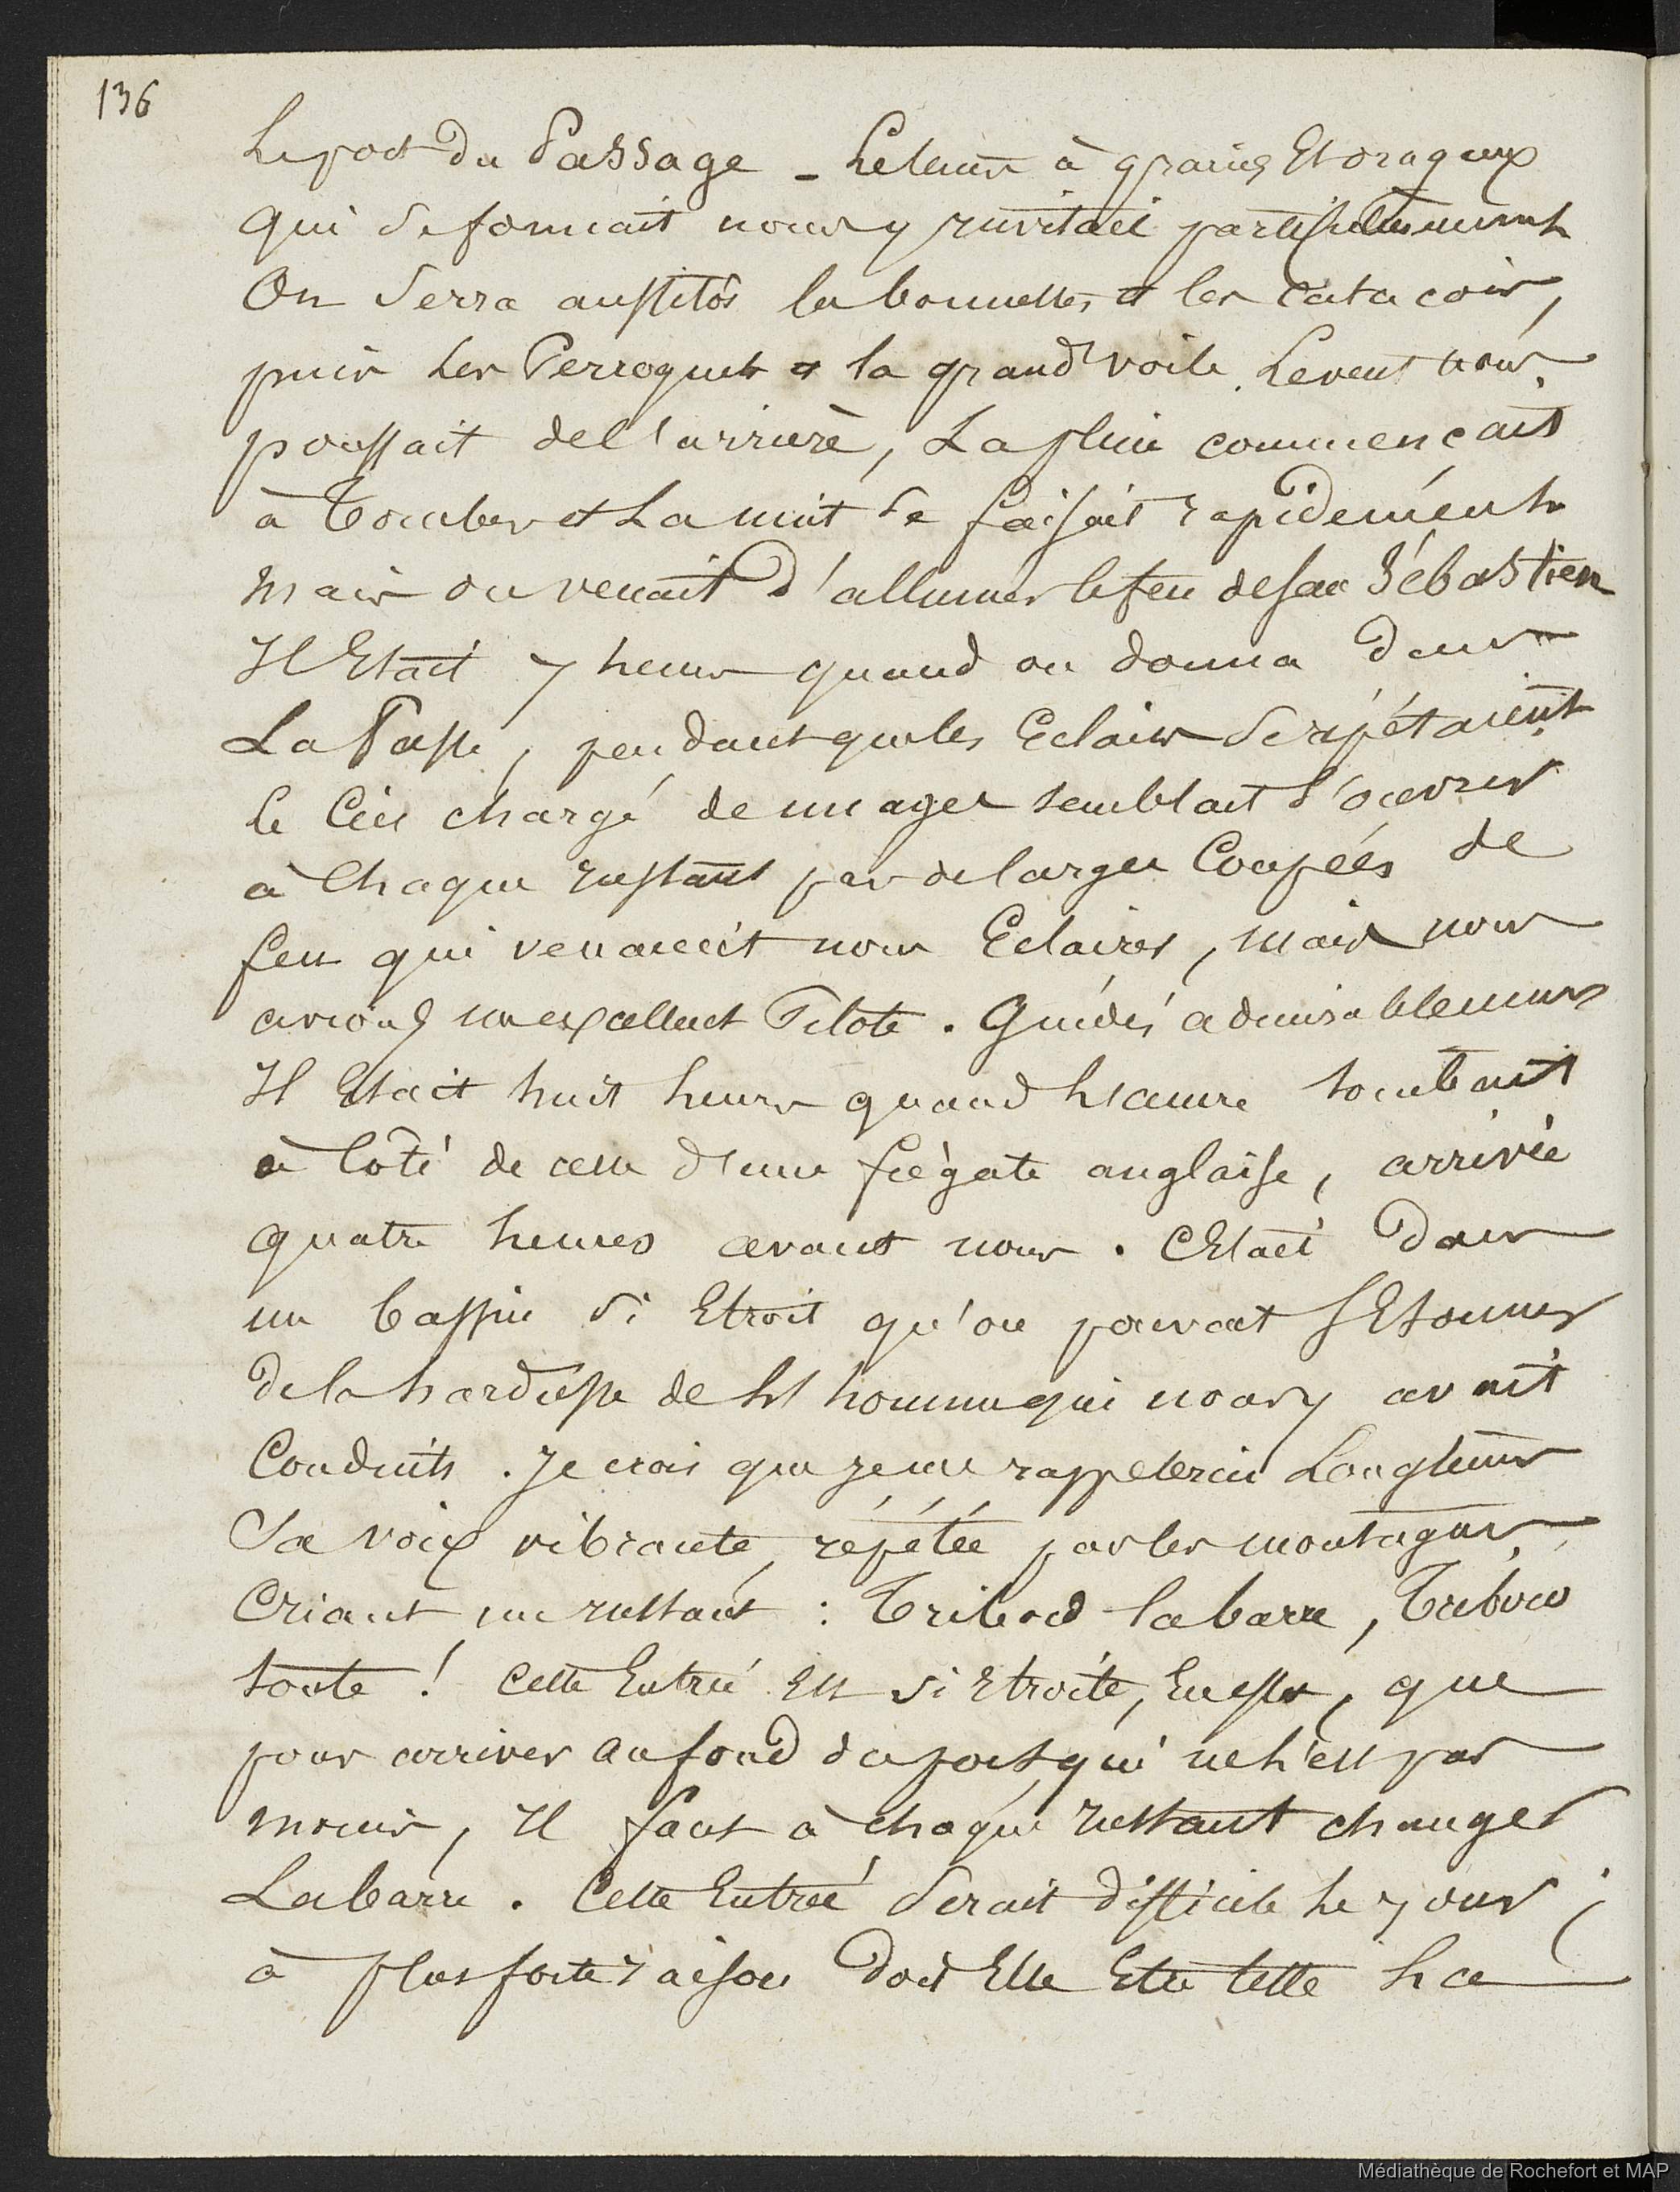 136
Le port du Passage _ Le temps à grains Et orageux
qui se formait nous y invitait particulièrement
On serra aussitôt les bonnettes et les catacois,
puis les Perroquets et la grand'voile. Le vent nous
poussait de l'arrière, La pluie commençait
à Tomber et La nuit se faisait rapidement
mais on venait d'allumer le feu de san Sébastien
Il Etait 7 heures quand on donna dans
La Passe, pendant que les Eclairs se répétaient
Le Ciel chargé de nuages semblait s'ouvrir
à Chaque instant par de larges Coupées de
feu qui venaient nous Eclairer, mais nous
avions un excellent Pilote. Guidés admirablement
Il Etait huit heures quand l'ancre tombait
à Côté de celle d'une frégate anglaise, arrivée
quatre heures avant nous. C'Etait dans
un bassin si Etroit qu'on pouvait s'Etonner
de la hardiesse de l'homme qui nous y avait
Conduits. Je crois que je me rappelerai Longtemps
Sa voix vibrante, répétée par les montagnes,
Criant un instant : Tribord la barre, Tribord
toute ! Cette Entrée Est si Etroite, En effet, que
pour arriver au fond du port qui ne l'est pas
moins, Il faut à chaque instant changer
La barre. Cette Entrée serait difficile le jour ;
à plus forte raison doit Elle Etre telle la
Médiathèque de Rochefort et MAP